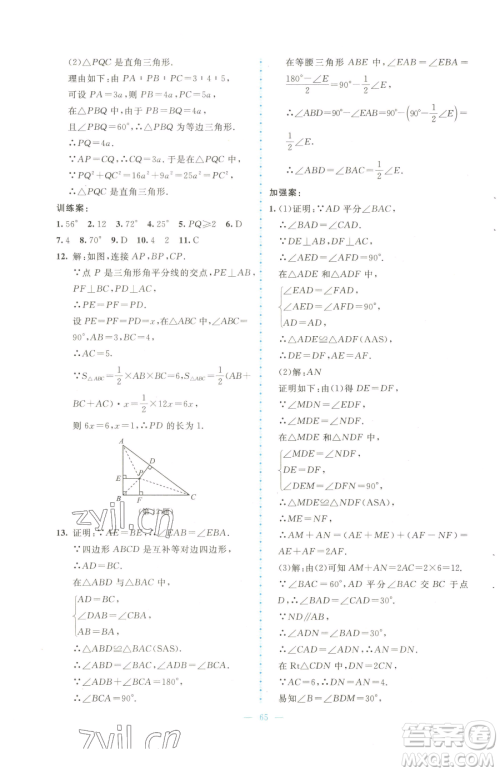 (2)△PQC 是直角三角形.
理由如下:由 PA∶PB∶PC=3∶4∶5,
可设 PA=3a,PB=4a,PC=5a,
在△PBQ 中,由于 PB=BQ=4a,
且∠PBQ=60°,∴△PBQ 为等边三角形.
∴PQ=4a.
∵AP=CQ,∴CQ=3a.
∵PQ²+QC²=16a²+9a²=25a²=PC²,
∴△PQC 是直角三角形.
训练案:
1.56° 2.12 3.72° 4.25° 5.PQ≥2 6.D
7.4 8.70° 9.D 10.4 2 11.C
12.解:如图,连接 AP,BP,CP.
∵点 P 是三角形角平分线的交点,PE⊥AB,
PF⊥BC,PD⊥AC,
∴PE=PF=PD.
设 PD=x,∵AB=3,BC=4,∠ABC=
90°,∴AC=5.
∵S△ABC=1/2×AB×BC=6,S△ABC=1/2(AB+
BC+AC)·x=1/2×12·x=6x,
则 6x=6,x=1.∴PD 的长为 1.
A
D
E P
B F C
13.证明:∵AE=BE,
∵四边形 ABCD 是互补等对边四边形,
∴AD=BC.
在△ABD 与△BAC 中,
AD=BC,
∠DAB=∠CBA,
AB=BA,
∴△ABD≌△BAC(SAS).
∴∠ABD=∠BAC.
∠BCA=90°.
在等腰三角形 ABE 中,∠EAB=∠EBA=
180°-∠E/2=90°-1/2∠E.
∴∠ABD=90°-∠EAB=90°-(90°-1/2∠E)
=1/2∠E.
∴∠ABD=∠BAC=1/2∠E.
加强案:
1.(1)证明:∵AD 平分∠BAC,
∴∠BAD=∠CAD.
∵∠AED=∠AFD=90°,
在△ADE 与△ADF 中,
∠EAD=∠FAD,
∠AED=∠AFD,
AD=AD,
∴△ADE≌△ADF(AAS).
(2)解:AN
证明如下:由(1)得 DE=DF,
∵∠MDN=∠EDF,
∴∠MDE=∠NDF,
在△MDE 与△NDF 中,
∠MDE=∠NDF,
DE=DF,
∠DEM=∠DFN,
∴△MDE≌△NDF(ASA).
∴ME=NF.
∴AM+AN=(AE+ME)+(AF-NF)=
AE+AF=2AF.
(3)解:由(2)可知 AM+AN=2AC=2×6=12.
∵∠BAC=60°,AD 平分∠BAC 交 BC 于点
D,∴∠BAD=∠CAD=30°.
∵ND∥AB,
∴∠ADN=∠BAD=30°.
∴∠CAD=∠ADN.
∴AN=DN.
在 Rt△CDN 中,∠DNC=∠BAC=60°.
∵AC=6,∴AN=4.
易知∠B=∠BDM=30°,
65
zyil.cn
zyjl.cn
答案圈
MXQE.COM